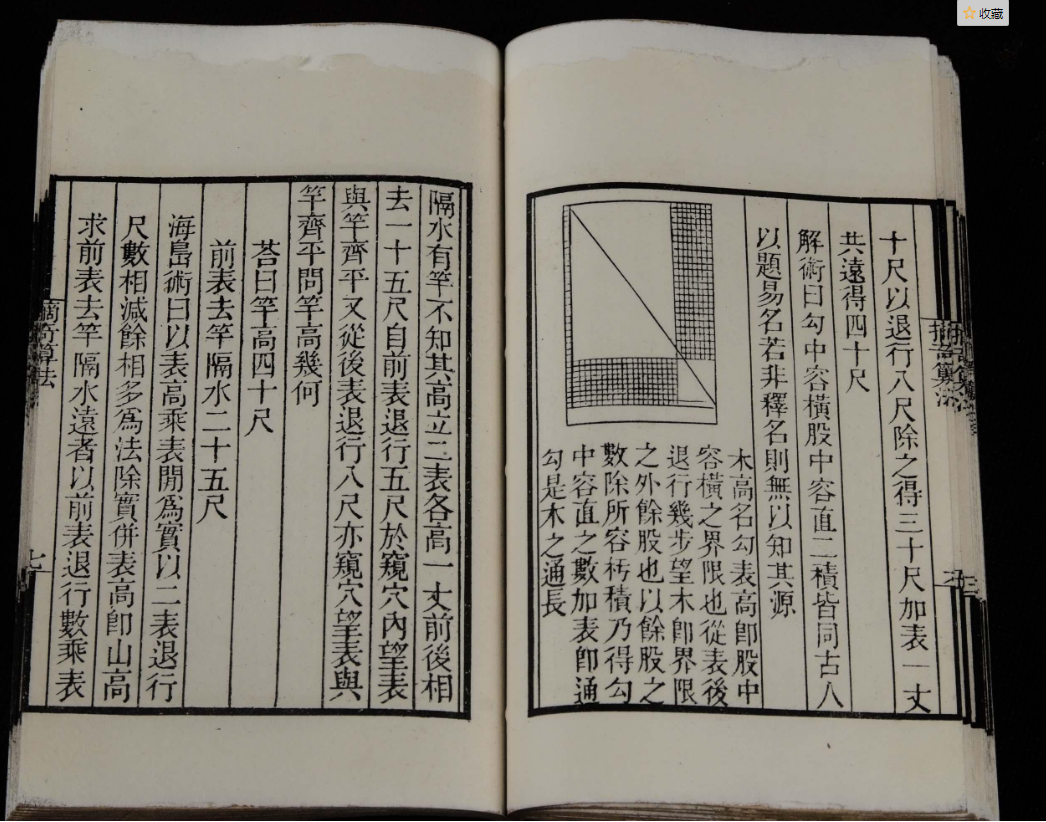 收藏
十尺以退行八尺除之得三十尺加表一丈
共遠得四十尺
解術曰勾中容橫股中容直二積皆同古人
以題易名若非釋名則無以知其源
木高名勾表高卽股中
容橫之界限也從表後
退行幾步望木卽界限
之外餘股也以餘股之
數除所容積乃得勾
中容直之數加表卽通
勾是木之通長
隔水有竿不知其高立二表各高一丈前後相
去一十五尺自前表退行五尺於窺穴內望表
與竿齊平又從後表退行八尺亦窺穴望表與
竿齊平問竿高幾何
荅曰竿高四十尺
前表去竿隔水二十五尺
海島術曰以表高乘表閒爲實以二表退行
尺數相減餘相多爲法除實併表高卽山高
求前表去竿隔水遠者以前表退行數乘表
摘奇算法
七